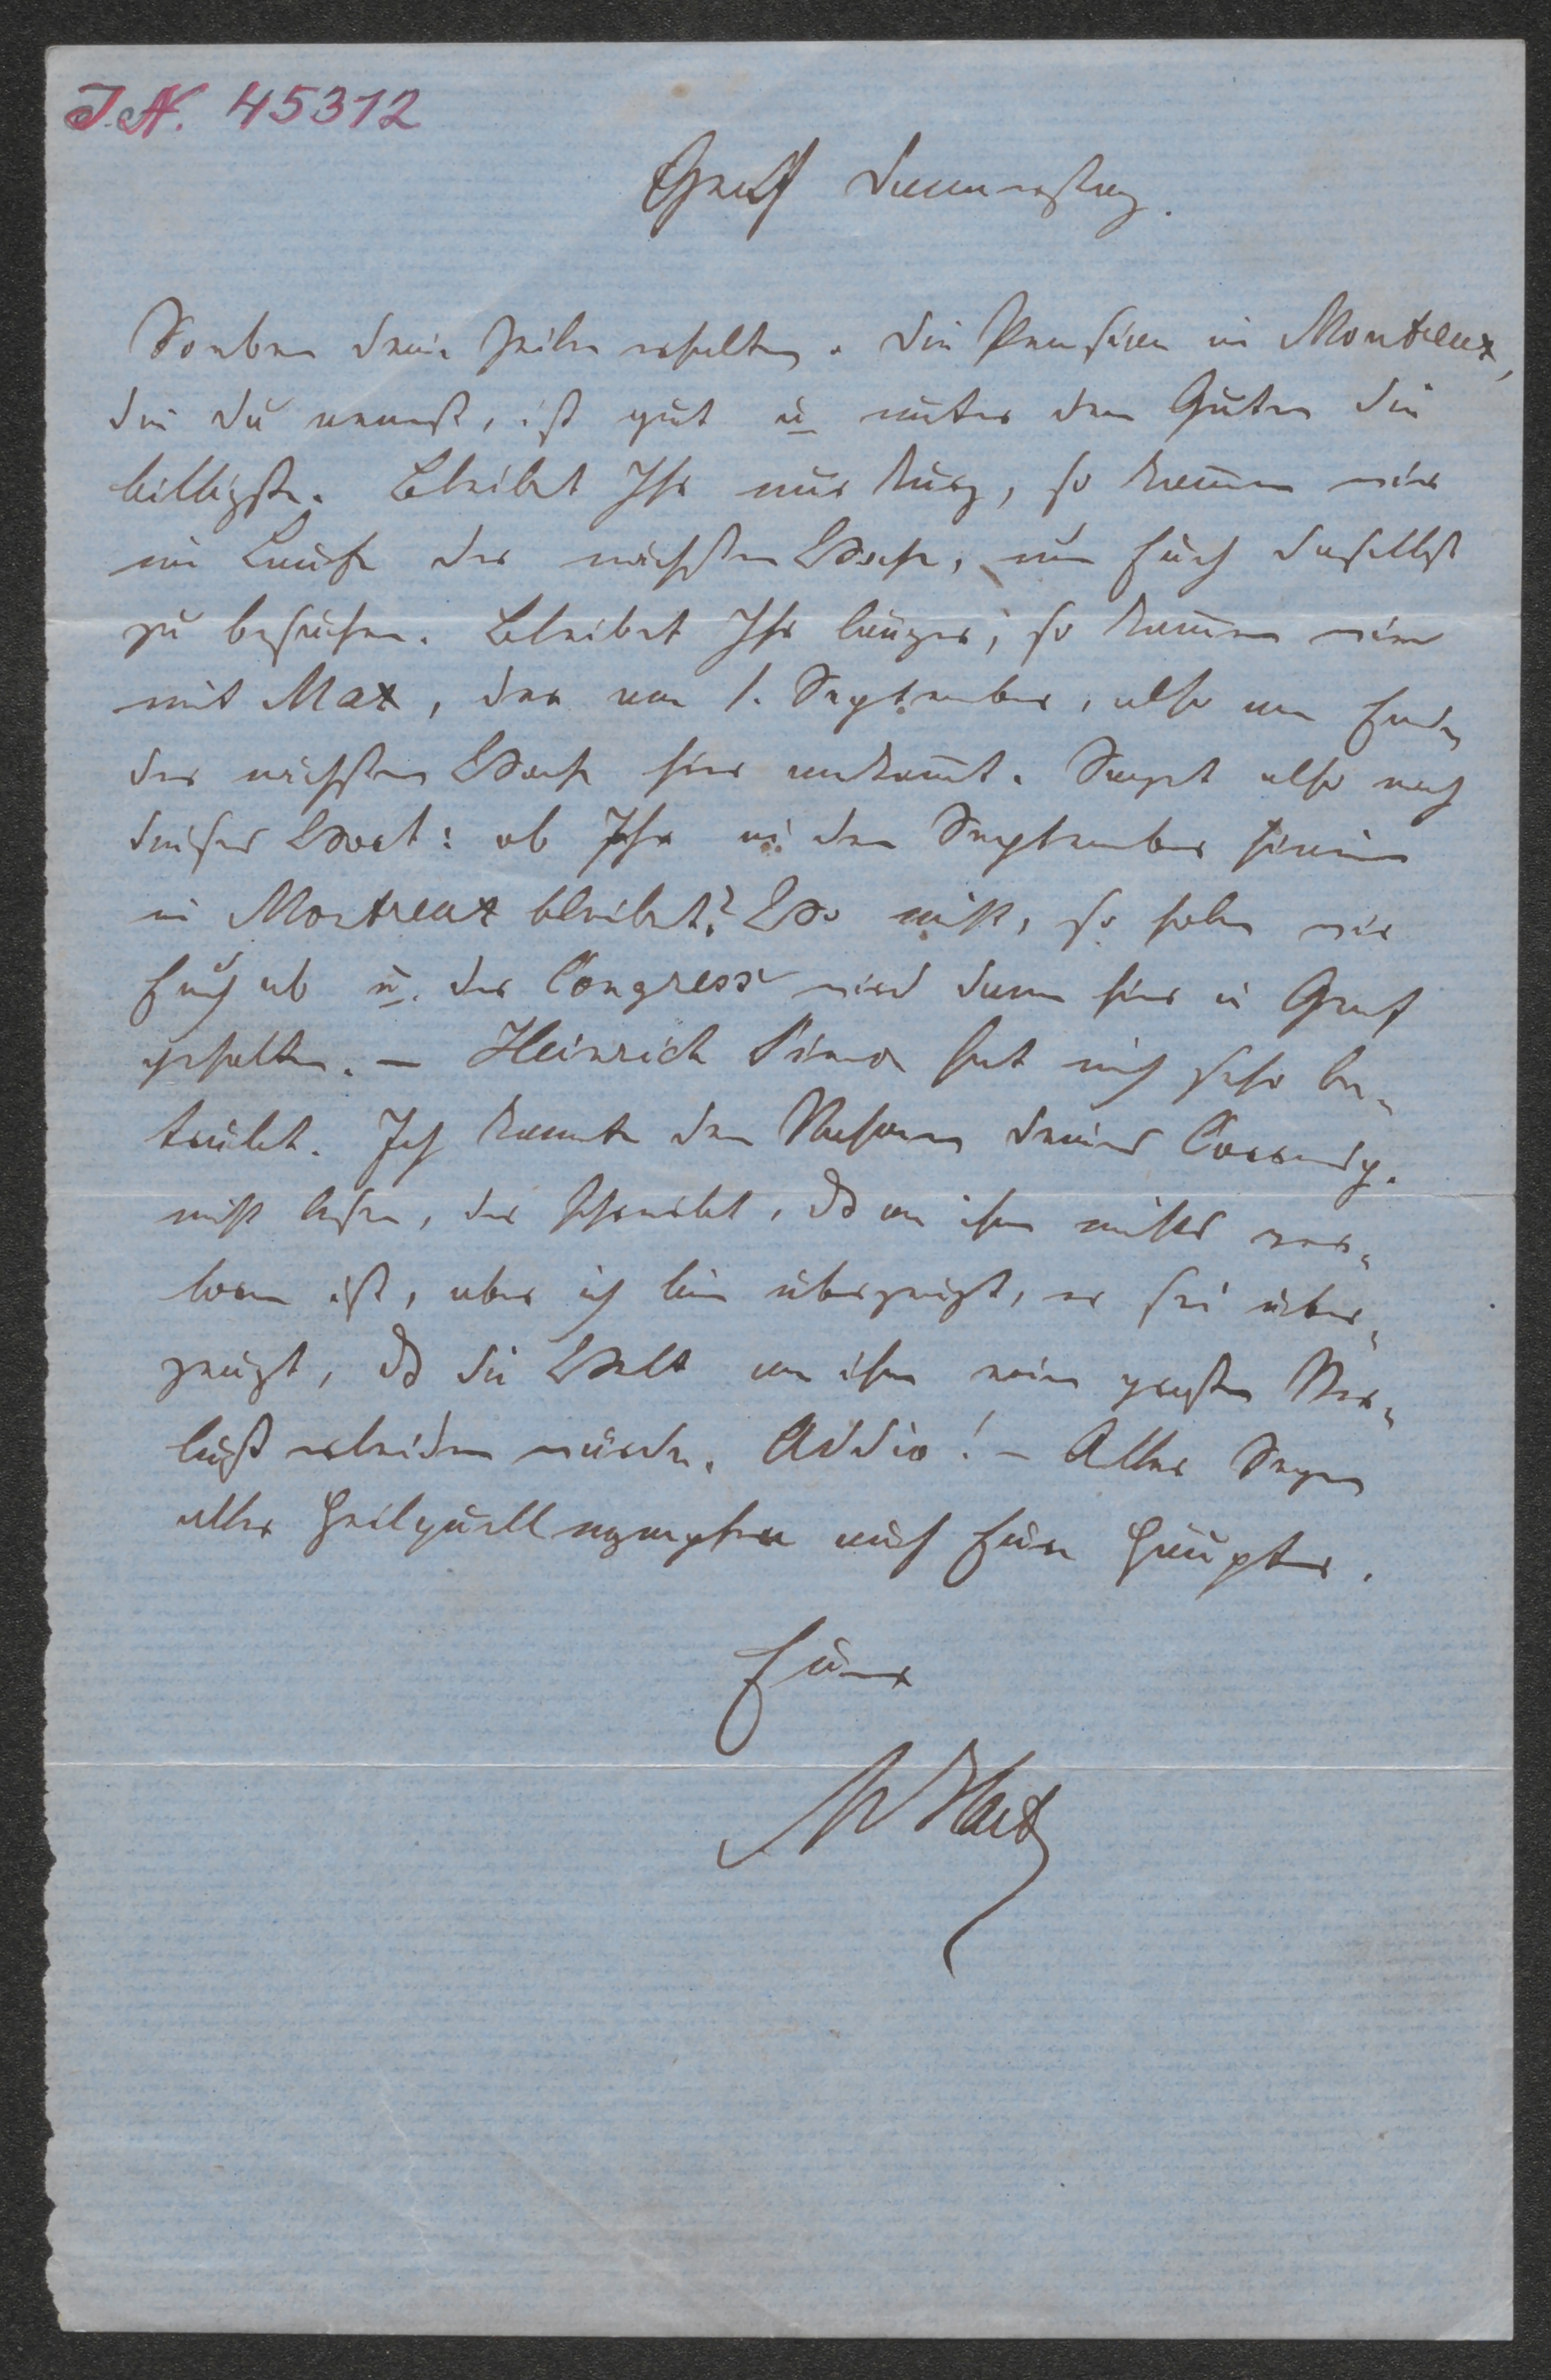 J.N. 45312
Genf Donnerstag.
Soeben deine Zeilen erhalten. Die Pension in Montreux,
die du nennst, ist gut u unter den Guten die
billigste. Bleibet Ihr nur kurz, so kom̅en wir
im Laufe der nächsten Woche, um Euch daselbst
zu besuchen. Bleibet Ihr länger, so kom̅en wir
mit Max, der am 1. September, also am Ende
der nächsten Woche hier ankom̅t. Saget also nach
dieser Wort: ob Ihr in den September hinein
in Montreux bleibet? Wo nicht, so holen wir
Euch ab u. der Congress wird dann hier in Genf
gehalten. – Heinrich Simon hat mich sehr be-
trübt. Ich kannte den Namen deines Corresp.
nicht lesen, der schreibt, dß an ihm nichts ver-
loren ist, aber ich bin überzeugt, er sei über-
zeugt, dß die Welt an ihm einen großen Ver-
lust erleiden würde. Addio! – Aller Segen
aller Heilquellnymphen auf Eure Häupter.
Euer
MHart